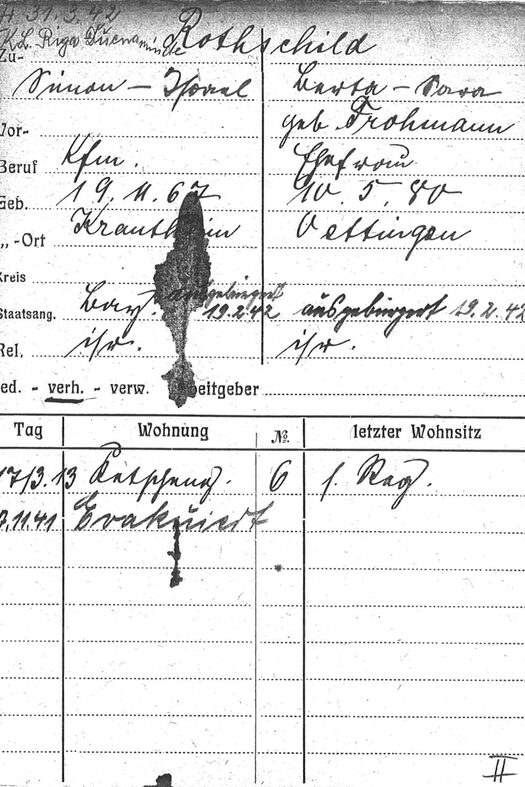 31.3.42
K.L. Riga
Rothschild
Zu-
Simon - Israel Berta - Sara
Vor- geb. Frohmann
Beruf Kfm. Ehefrau
Geb. 19.11.67 10.5.80
„-Ort Krautheim Oettingen
Kreis
Staatsang. Bay. ausgebürgert 19.2.42 ausgebürgert 19.2.42
Rel. isr. isr.
led. - verh. - verw. Arbeitgeber
Tag Wohnung № letzter Wohnsitz
17/3.13 Ketscheng. 6 s. Reg.
11.41 Evakuiert
II